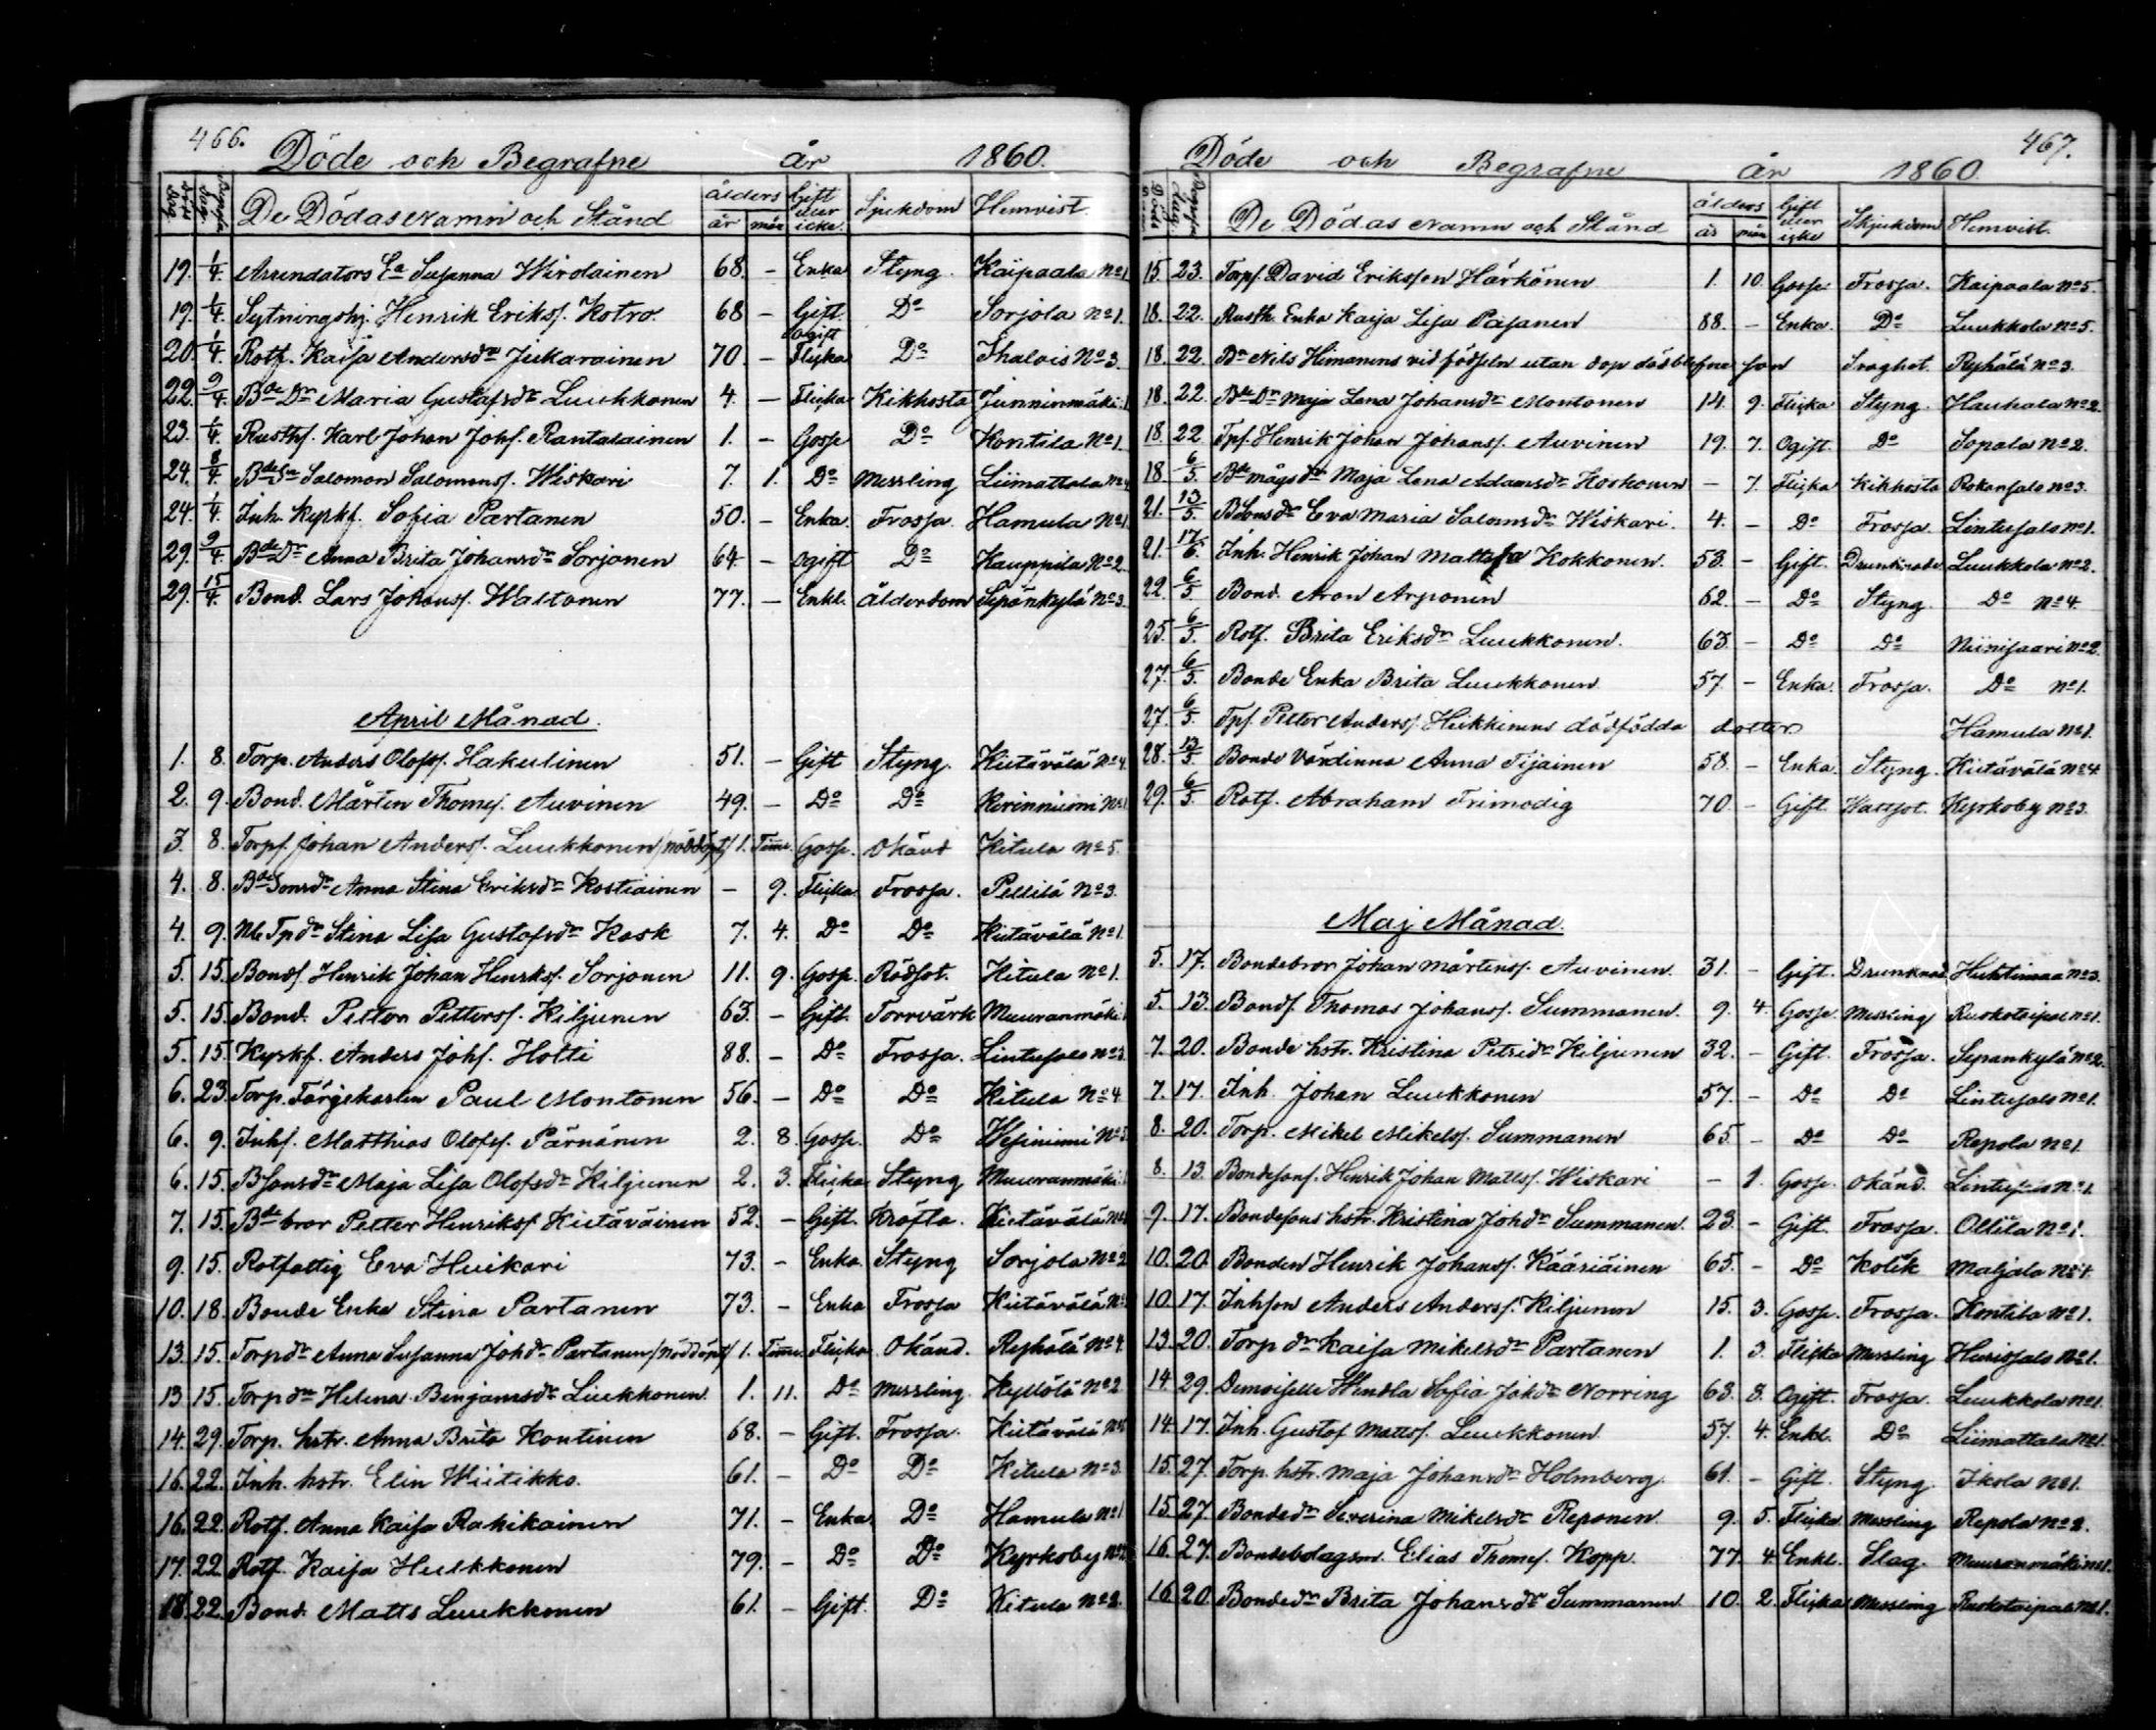 466.
Döde och Begrafne år 1860.
Döde Dag. Begrafn. Dag. De Dödas Namn och Stånd ålders år mån Gift eller icke. Sjukdom Hemvist.
19. 1/4. Arrendators Ea Susanna Wirolainen 68. - Enka Styng. Kaipaala No 1
19. 1/4. Sytningshj. Henrik Eriksf. Kotro. 68 - Gift Do Sorjola No 1.
20. 1/4. Rotf. Kaisa Andersdr Jukarainen 70. - Ogift Flicka Do Ihalois No 3.
22. 9/4. Bde Dr Maria Gustafsdr Luukkonen 4. - Flicka Kikhosta Junninmäki 1
23. 1/4. Rusthf. Karl Johan Johf. Rantalainen 1. - Gosse Do Kontila No 1.
24. 8/4. Bde Sn Salomon Salomonsf. Wiskari 7. 1. Do Messling Liimattala No 4
24. 1/4. Inh. Kyrkf. Sofia Partanen 50. - Enka. Frossa. Hamula No 1.
29. 9/4. Bde Dr Anna Brita Johansdr Sorjonen 64. - Ogift Do Kauppila No 2.
29. 15/4. Bond. Lars Johansf. Waltonen 77. - Enkl. Ålderdom Sipankylä No 3.
April Månad.
1. 8. Torp. Anders Olofsf. Hakulinen 51. - Gift Styng. Kiitävälä No 4.
2. 9. Bond. Mårten Thomef. Auvinen 49. - Do Do Kirinniemi No 1
3. 8. Torpf. Johan Andersf. Luukkonen /nöddöpt/ 1. Timm. Gosse. Okänd Kitula No 5.
4. 8. Bde Sonsdr Anna Stina Eriksdr Kostiainen - 9. Flicka Frossa. Pellilä No 3.
4. 9. Nb Tp dr Stina Lisa Gustafsdr Kask 7. 4. Do Do Kiitävälä No 1.
5. 15. Bondf. Henrik Johan Henrksf. Sorjonen 11. 9. Gosse. Rödsot. Kitula No 1.
5. 15. Bond. Petter Pettersf. Kiljunen 63. - Gift. Torrvärk Muuranmäki 1
5. 15. Kyrkf. Anders Johf. Holti 88. - Do Frossa. Lintusalo No 3.
6. 23. Torp. Färgekarlen Paul Montonen 56. - Do Do Kitula No 4.
6. 9. Inhf. Matthias Olofsf. Pärnänen 2. 8. Gosse. Do Wejiniemi No 3
6. 15. BSonsdr Maja Lisa Olofsdr Kiljunen 2. 3. Flicka Styng Muuranmäki 1
7. 15. Bde bror Petter Henriksf Kietäväinen 52. - Gift. Kräfta. Kietävälä No
9. 15. Rotfattig Eva Huikari 73. - Enka Styng Sorjola No 2
10. 18. Bonde Enka Stina Partanen 73. - Enka Frossa Kiitävälä No
13. 15. Torp dr Anna Susanna Joh dr Partanen /nöddöpt/ 1. Timm. Flicka Okänd. Ryhälä No 4.
13 15. Torp dr Helena Benjamsdr Luukkonen. 1. 11. Do Messling. Kyllölä No 2
14. 29. Torp. hstr. Anna Brita Kontinen 68. - Gift. Frossa. Kiitävälä No
16. 22. Inh. hstr. Elin Wiitikko. 61. - Do Do Kitula No 3.
16. 22. Rotf. Anna Kaisa Rahikainen 71. - Enka Do Hamula No 1
17. 22. Rotf. Kaisa Hulkkonen 79. - Do Do Kyrkoby No
18. 22. Bond. Matts Luukkonen 61. - Gift. Do Kitula No 2.
467.
Döde och Begrafne år 1860.
Döde Begrafne Dag. De Dödas Namn och Stånd ålders år mån Gift eller icke Skjukdom Hemvist.
15. 23. Torpf. David Eriksson Härkönen 1. 10. Gosse Frossa. Kaipaala No 5.
18. 22. Rusth. Enka Kaisa Lisa Pasanen 88. - Enka. Do Luukkola No 5.
18. 22. Bn Nils Himanens vid födseln utan dop dödblefne son Svaghet. Ryhälä No 3.
18. 22. Bde Dr Maja Lena Johansdr Montonen 14. 9. Flicka Styng. Haukala No 2.
18. 22 Tpf. Henrik Johan Johansf. Auvinen 19. 7. Ogift. Do Sopala No 2.
18 6/5. Bde mågs dr Maja Lena Adamsdr Koskonen - 7. Flicka Kikhosta Rokansalo No 3.
21. 13/5. BSonsdr Eva Maria Salomsdr Wiskari. 4. - Do Frossa. Lintusalo No 1.
21. 17/6. Inh. Henrik Johan Mattsson Kokkonen. 53. - Gift. Drunknade Luukkola No 2.
22. 6/5. Bond. Aron Arponen 62. - Do Styng. Do No 4.
25. 6/5. Rotf. Brita Eriksdr Luukkonen. 63. - Do Do Niinisaari No 2.
27. 6/5. Bonde Enka Brita Luukkonen 57. - Enka. Frossa. Do No 1.
27. 6/5. Tpf. Petter Andersf. Heikkinens dödfödda dotter Hamula No 1.
28. 13/5. Bonde Värdinna Anna Tijainen 58. - Enka. Styng. Kiitävälä No 4.
29. 6/5. Rotf. Abraham Frimodig 70. - Gift. Wattsot. Kyrkoby No 3.
Maj Månad.
5. 17. Bondebror Johan Mårtensf. Auvinen. 31. - Gift. Drunknad. Huhtimaa No 3.
5. 13. Bondf. Thomas Johansf. Summanen. 9. 4. Gosse. Messling Ruokotaipal No 1.
7. 20. Bonde hstr. Kristina Petridr Kiljunen 32. - Gift. Frossa. Sipankylä No 2.
7. 17. Inh. Johan Luukkonen 57. - Do Do Lintusalo No 1.
8. 20. Torp. Mikel Mikelsf. Summanen 65. - Do Do Repola No 1.
8. 13. Bondesonf. Henrik Johan Mattsf. Wiskari - 1. Gosse. Okänd. Lintusalo No 1.
9. 17. Bondesons hstr. Kristina Joh dr Summanen. 23. - Gift. Frossa. Ollila No 1.
10. 20. Bonden Henrik Johansf. Kääriäinen 65. - Do Kolik Maljala No 4.
10. 17. Inhson Anders Andersf. Kiljunen 15. 3. Gosse. Frossa. Kontila No 1.
13. 20. Torp dr Kaisa Mikelsdr Partanen 1. 3. Flicka Messling Hurissalo No 1.
14. 29. Demoiselle Wendla Sofia Joh dr Norring 63. 8. Ogift. Frossa. Luukkola No 1.
14. 17. Inh. Gustaf Mattsf. Luukkonen 57. 4. Enkl. Do Liimattala No 1.
15. 27. Torp. hstr. Maja Johansdr Holmberg. 61. - Gift. Styng. Ikola No 1.
15. 27. Bonde dr Severina Mikelsdr Reponen. 9. 5. Flicka Messling Repola No 2.
16. 27. Bondebolagsm. Elias Thomef. Kopp. 77. 4. Enkl. Slag. Muuranmäki No 1.
16. 20. Bonde dr Brita Johansdr Summanen 10. 2. Flicka Messling Ruokotaipal No 1.